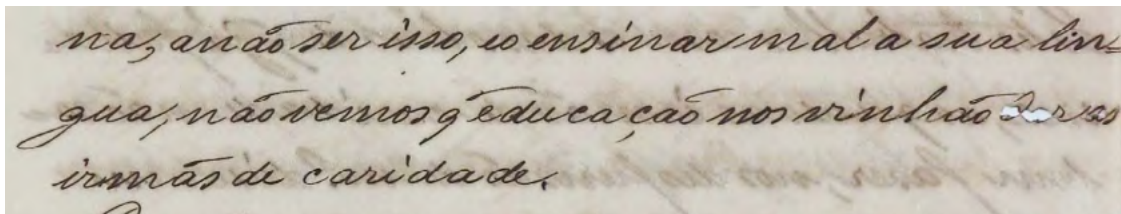 na, a não ser isso, e o ensinar mal a sua lin-
gua, não vemos q̃ educação nos vinhão dar as
irmãs de caridade.